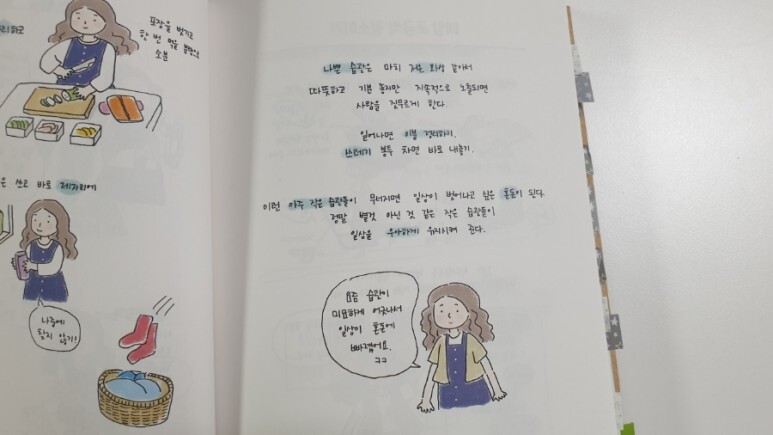 포장을 벗기고
한 번 먹을 분량으로
소분
은 쓰고 바로 제자리에
나중에
하지 않기!
나쁜 습관은 마치 저온 화상 같아서
따뜻하고 기분 좋지만 지속적으로 노출되면
사람을 짓무르게 한다.
일어나면 이불 정리하기.
쓰레기 봉투 차면 바로 내놓기.
이런 아주 작은 습관들이 무너지면 일상이 벗어나고 싶은 혼돈이 된다.
정말 별것 아닌 것 같은 작은 습관들이
일상을 우아하게 유지시켜 준다.
요즘 습관이
미묘하게 어긋나서
일상이 혼돈에
빠졌어요.
ㅋㅋ